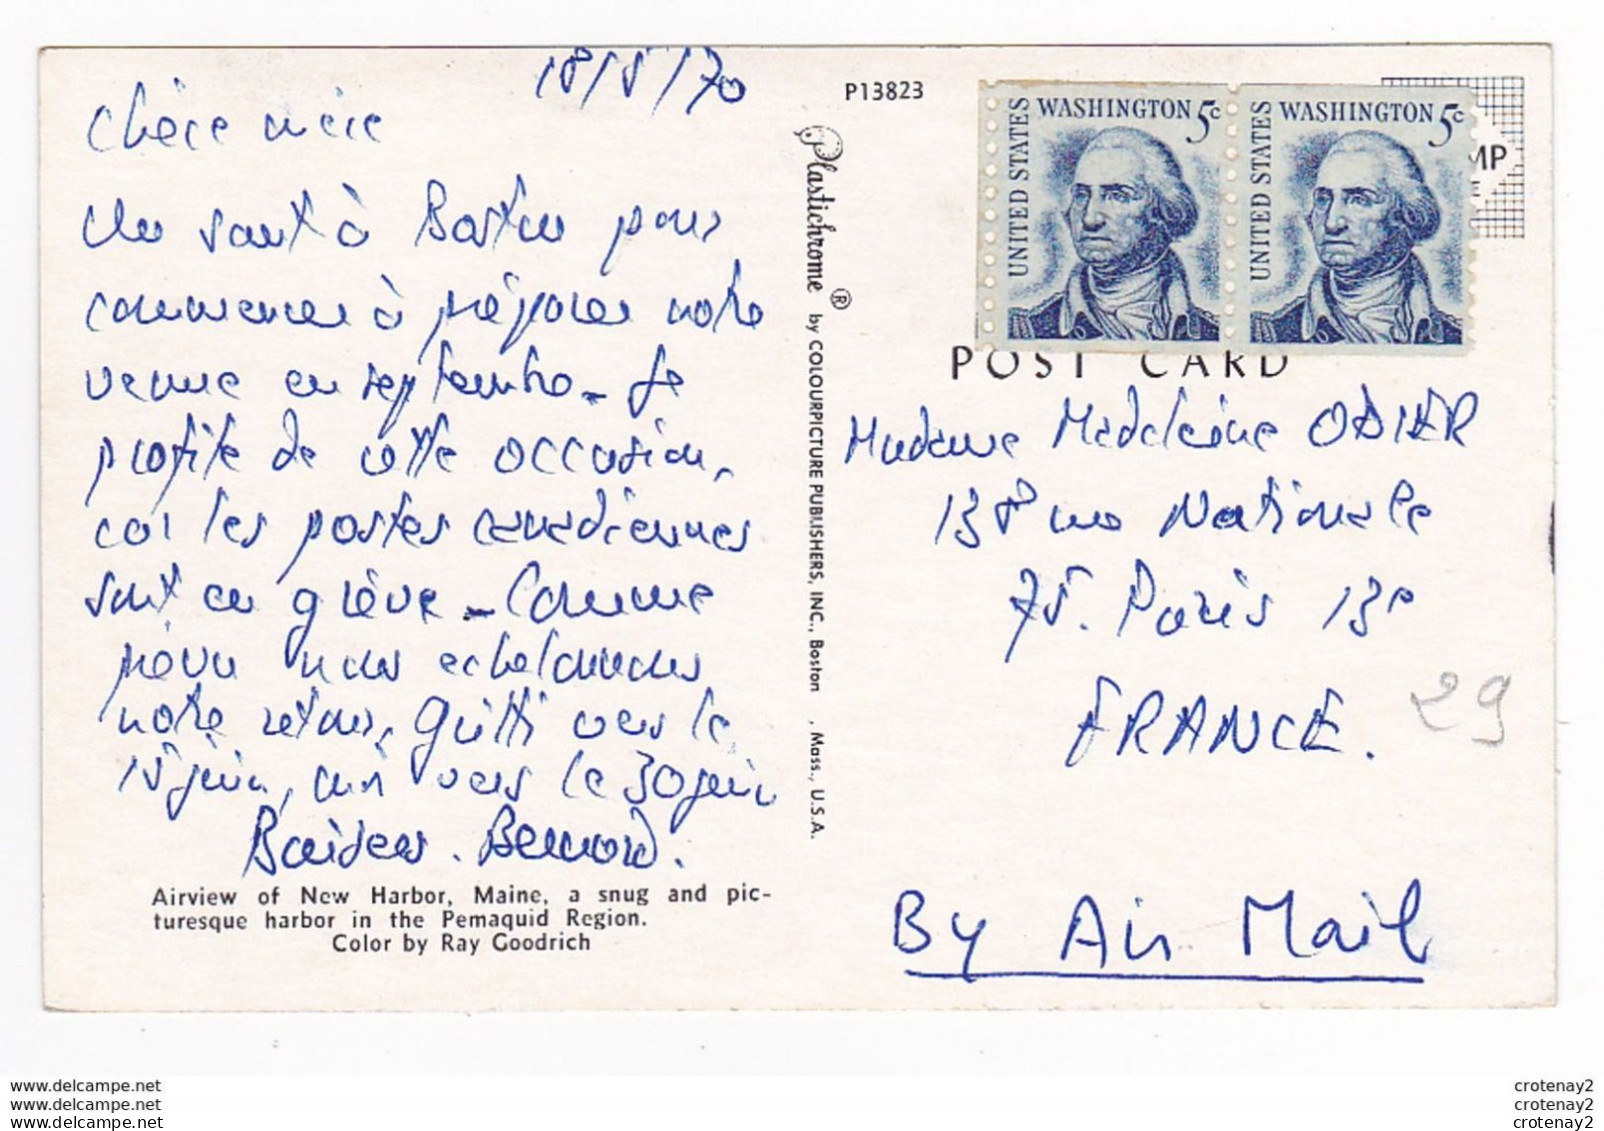 18/5/70
Chère mère
Un saut à Boston pour
commencer à préparer notre
venue en septembre - Je
profite de cette occasion,
car les postes canadiennes
sont en grève - Comme
prévu nous echelonnons
notre retour, Guitti vers le
15 juin, moi vers le 30 juin
Baisers. Bernard.
Airview of New Harbor, Maine, a snug and pic-
turesque harbor in the Pemaquid Region.
Color by Ray Goodrich
Plastichrome ® by COLOURPICTURE PUBLISHERS, INC., Boston , Mass., U.S.A.
P13823
UNITED STATES WASHINGTON 5c
UNITED STATES WASHINGTON 5c
MP
E
POST CARD
Madame Madeleine ODIER
138 rue Nationale
75. Paris 13e
FRANCE.
29
By Air Mail
www.delcampe.net
www.delcampe.net
www.delcampe.net
crotenay2
crotenay2
crotenay2